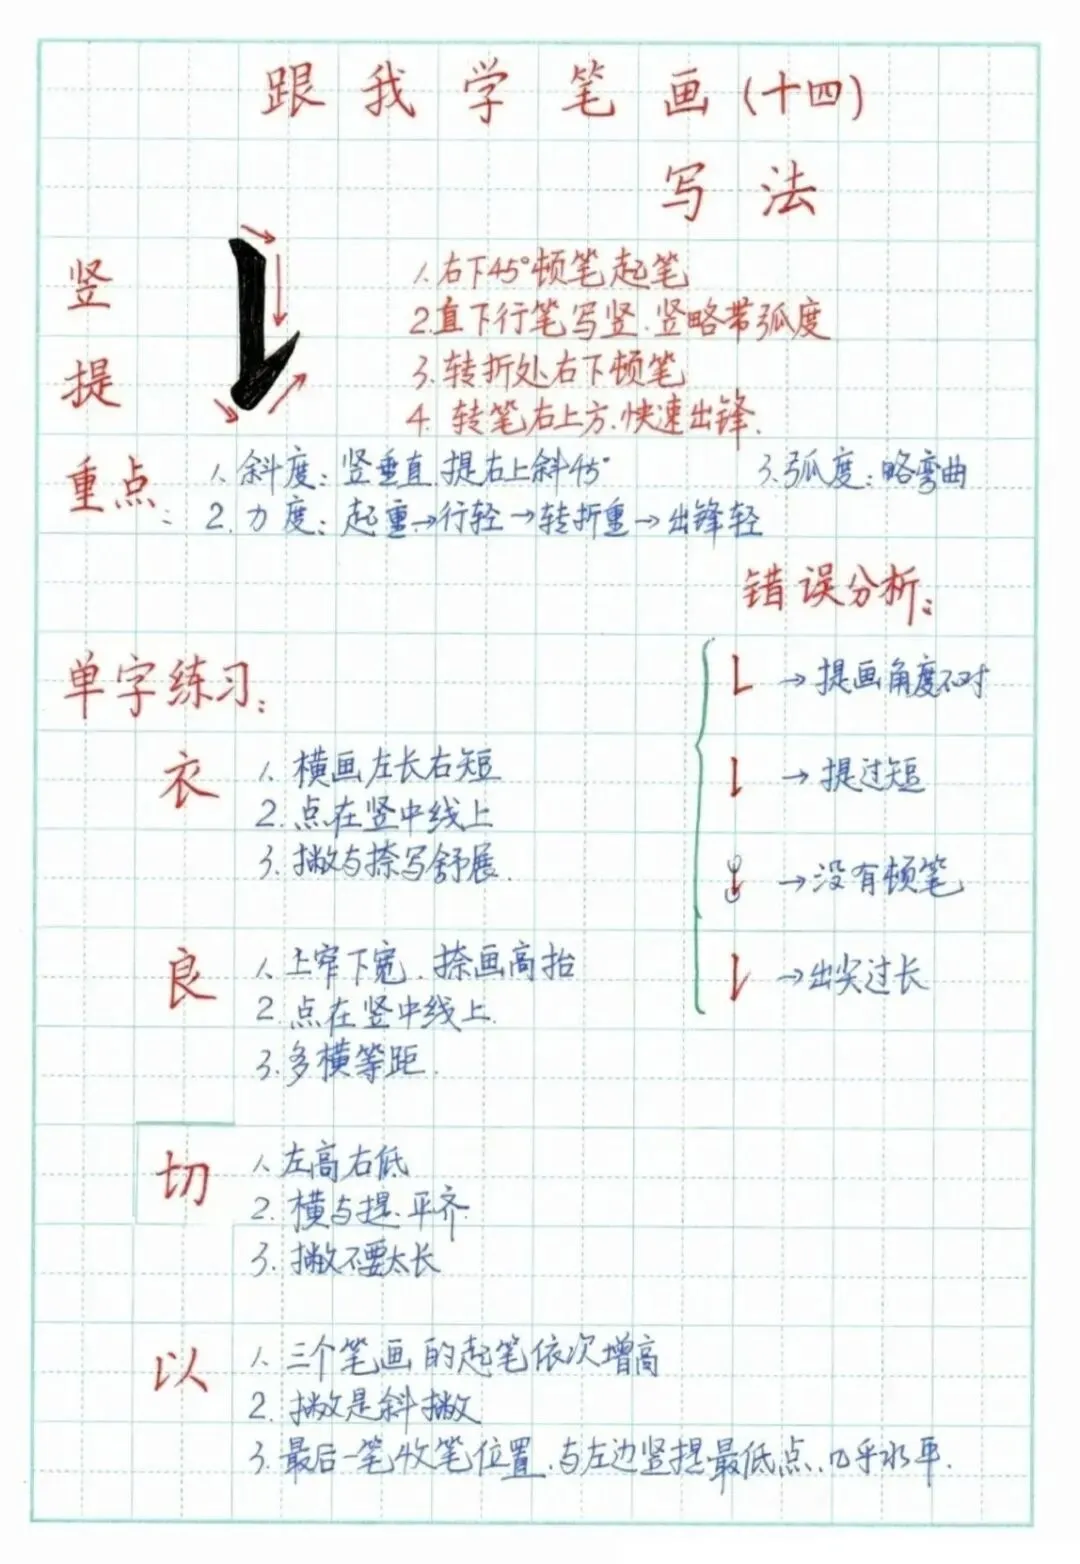 跟我学笔画(十四)
写法
竖提
1.右下45°顿笔起笔
2.直下行笔写竖.竖略带弧度
3.转折处右下顿笔
4.转笔右上方.快速出锋.
重点:
1.斜度:竖垂直 提右上斜45°
3.弧度:略弯曲
2.力度:起重→行轻→转折重→出锋轻
错误分析:
→提画角度不对
→提过短
→没有顿笔
→出尖过长
单字练习:
衣
1.横画左长右短
2.点在竖中线上
3.撇与捺写舒展.
良
1.上窄下宽.捺画高抬
2.点在竖中线上.
3.多横等距.
切
1.左高右低
2.横与提.平齐.
3.撇不要太长
以
1.三个笔画的起笔依次增高
2.撇是斜撇
3.最后一笔收笔位置.与左边竖提最低点.几乎水平.